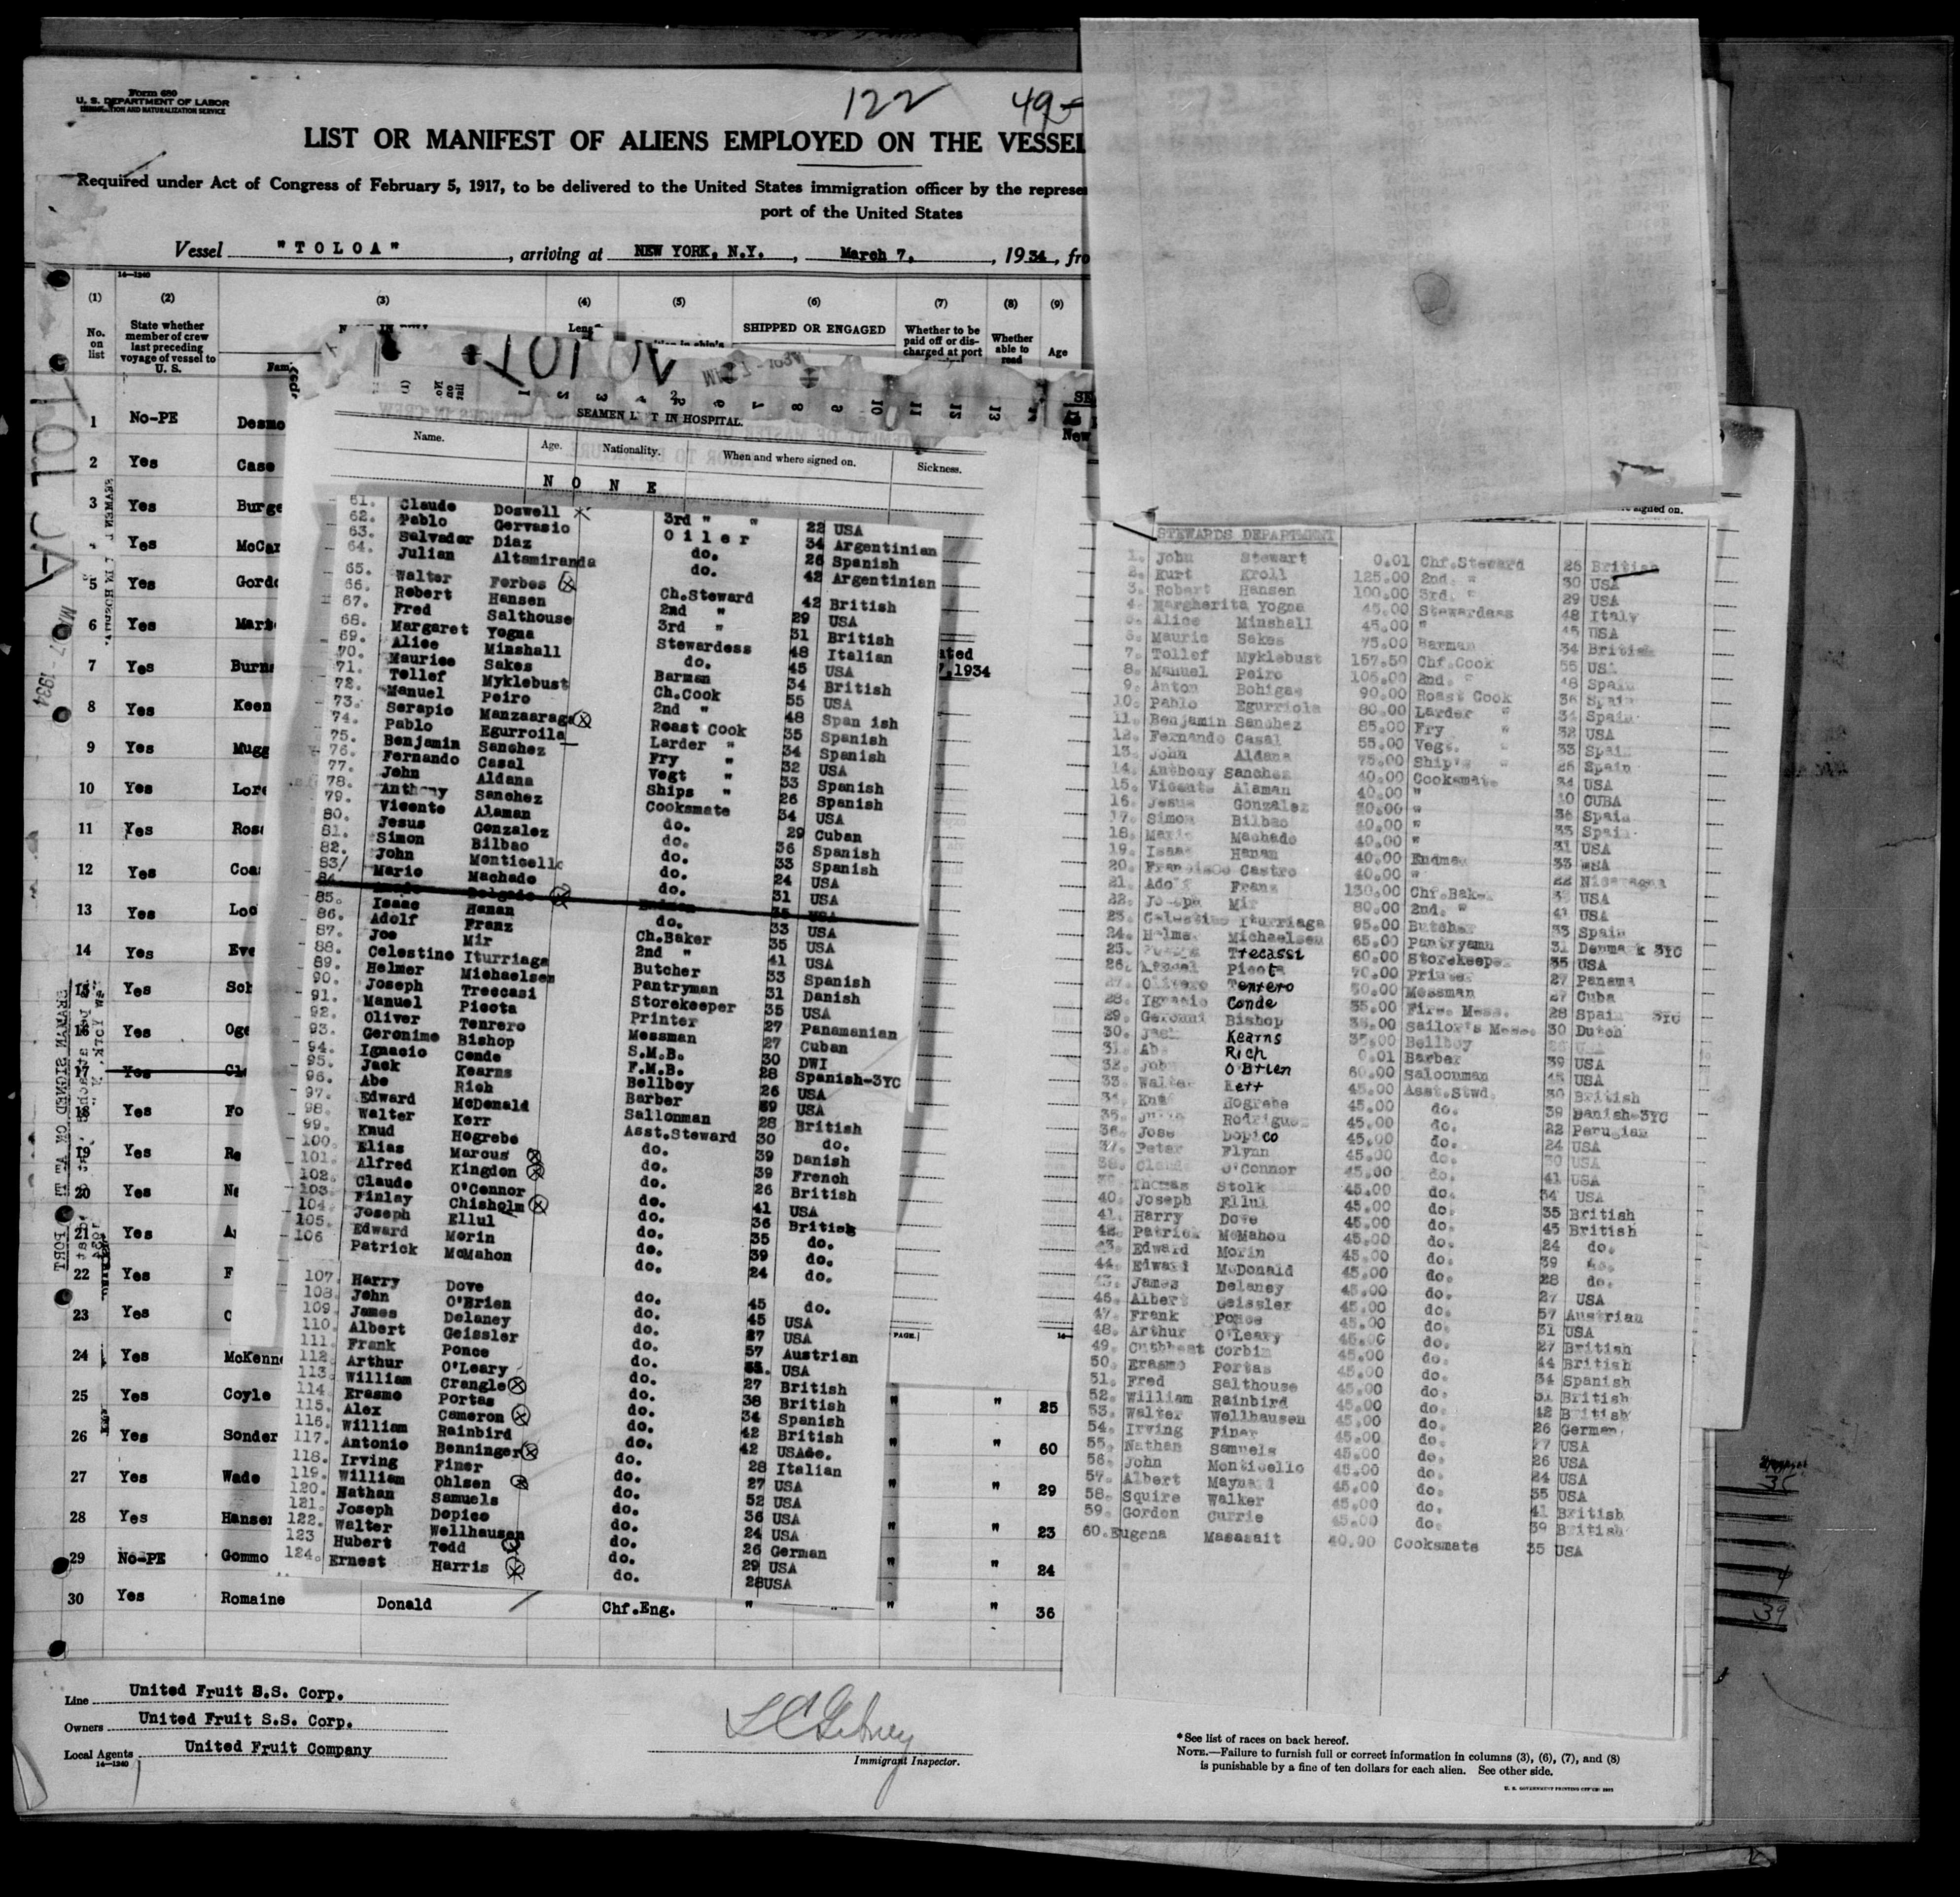 Form 680
U. S. DEPARTMENT OF LABOR
IMMIGRATION AND NATURALIZATION SERVICE
122
49-
LIST OR MANIFEST OF ALIENS EMPLOYED ON THE VESSEL
Required under Act of Congress of February 5, 1917, to be delivered to the United States immigration officer by the represe
port of the United States
Vessel "TOLOA", arriving at NEW YORK, N.Y., March 7, 1934, fro
14-1240
(1) (2) (3) (4) (5) (6) (7) (8) (9)
No. on list
State whether member of crew last preceding voyage of vessel to U. S.
SHIPPED OR ENGAGED
Whether to be paid off or discharged at port
Whether able to read
Age
1 No-PE Desmo
2 Yes Case
3 Yes Burge
4 Yes McCar
5 Yes Gord
6 Yes Mari
7 Yes Burn
8 Yes Keen
9 Yes Mugg
10 Yes Lore
11 Yes Ros
12 Yes Coa
13 Yes Loc
14 Yes Eve
15 Yes Sch
16 Yes Oge
17 Yes Cl
18 Yes Fo
19 Yes Re
20 Yes Ne
21 Yes A
22 Yes F
23 Yes C
24 Yes McKenn
25 Yes Coyle " " 25
26 Yes Sonder " " 60
27 Yes Wade " " 29
28 Yes Hanser " " 23
29 No-PE Gommo " " 24
30 Yes Romaine Donald Chf.Eng. " " " 36
TOLOA
SEAMEN L T IN HOSPITAL.
Name. Age. Nationality. When and where signed on. Sickness.
N O N E
61. Claude Doswell 3rd " " 22 USA
62. Pablo Gervasio Oiler 34 Argentinian
63. Salvador Diaz do. 26 Spanish
64. Julian Altamiranda do. 42 Argentinian
65. Walter Forbes Ch.Steward 42 British
66. Robert Hansen 2nd " 29 USA
67. Fred Salthouse 3rd " 31 British
68. Margaret Yogna Stewardess 48 Italian
69. Alice Minshall do. 45 USA
70. Maurice Sakes Barman 34 British
71. Tollef Myklebust Ch.Cook 55 USA
72. Manuel Peiro 2nd " 48 Span ish
73. Serapio Manzaaraga Roast Cook 35 Spanish
74. Pablo Egurroila Larder " 34 Spanish
75. Benjamin Sanchez Fry " 32 USA
76. Fernando Casal Vegt " 33 Spanish
77. John Aldana Ships " 26 Spanish
78. Anthony Sanchez Cooksmate 34 USA
79. Vicente Alaman do. 29 Cuban
80. Jesus Gonzalez do. 36 Spanish
81. Simon Bilbao do. 33 Spanish
82. John Monticello do. 24 USA
83/ Mario Machado do. 31 USA
84. Delgado 35 USA
85. Isaac Hanan do. 33 USA
86. Adolf Franz Ch.Baker 35 USA
87. Joe Mir 2nd " 41 USA
88. Celestino Iturriaga Butcher 33 Spanish
89. Helmer Michaelsen Pantryman 31 Danish
90. Joseph Treccasi Storekeeper 35 USA
91. Manuel Picota Printer 27 Panamanian
92. Oliver Tenrero Messman 27 Cuban
93. Geronimo Bishop S.M.B. 30 DWI
94. Ignacio Conde F.M.B. 28 Spanish-3YC
95. Jack Kearns Bellboy 26 USA
96. Abe Rich Barber 39 USA
97. Edward McDonald Sallonman 28 British
98. Walter Kerr Asst.Steward 30 do.
99. Knud Hogrebe do. 39 Danish
100. Elias Marcus do. 39 French
101. Alfred Kingdon do. 26 British
102. Claude O'Connor do. 41 USA
103. Finlay Chisholm do. 36 British
104. Joseph Ellul do. 35 do.
105. Edward Morin do. 39 do.
106 Patrick McMahon do. 24 do.
107. Harry Dove do. 45 do.
108. John O'Brien do. 45 USA
109. James Delaney do. 27 USA
110. Albert Geissler do. 57 Austrian
111. Frank Ponce do. USA
112. Arthur O'Leary do. 27 British
113. William Crangle do. 38 British
114. Erasmo Portas do. 34 Spanish
115. Alex Cameron do. 42 British
116. William Rainbird do. 42 USAdo.
117. Antonio Benninger do. 28 Italian
118. Irving Finer do. 27 USA
119. William Ohlsen do. 52 USA
120. Nathan Samuels do. 36 USA
121. Joseph Dopico do. 24 USA
122. Walter Wellhausen do. 26 German
123 Hubert Todd do. 29 USA
124. Ernest Harris do. 28USA
ated
7,1934
PAGE.
signed on.
STEWARDS DEPARTMENT
1. John Stewart 0.01 Chf.Steward 26 British
2. Kurt Kroll 125.00 2nd. " 30 USA
3. Robert Hansen 100.00 3rd. " 29 USA
4. Margherita Yogna 45.00 Stewardess 48 Italy
5. Alice Minshall 45.00 " 45 USA
6. Mauric Sakes 75.00 Barman 34 British
7. Tollef Myklebust 157.50 Chf.Cook 55 USA
8. Manuel Peiro 105.00 2nd. " 48 Spain
9. Anton Bohigas 90.00 Roast Cook 36 Spain
10. Pablo Egurriola 80.00 Larder " 34 Spain
11. Benjamin Sanchez 85.00 Fry " 32 USA
12. Fernando Casal 55.00 Vegt. " 33 Spain
13. John Aldana 75.00 Ship's " 26 Spain
14. Anthony Sanchez 40.00 Cooksmate 34 USA
15. Vicente Alaman 40.00 " CUBA
16. Jesus Gonzalez " 36 Spain
17. Simon Bilbao 40.00 " 33 Spain
18. Mario Machado 40.00 " 31 USA
19. Isaac Hanan 40.00 Endman 33 USA
20. Francisco Castro 40.00 " 22 Nicaragua
21. Adolf Frans 130.00 Chf.Baker USA
22. Joseph Mir 80.00 2nd. " 41 USA
23. Celestino Iturriaga 95.00 Butcher 33 Spain
24. Helmer Michaelsen 65.00 Pantryamn 31 Denmark 3YC
25. Trecassi 60.00 Storekeeper 35 USA
26. Manuel Picota 70.00 Printer 27 Panama
27. Olivero Tenrero 50.00 Messman 27 Cuba
28. Ignacio Conde 35.00 Fire. Mess. 28 Spain 3YC
29. Geronni Bishop 35.00 Sailor's Mess. 30 Dutch
30. Jack Kearns 35.00 Bellboy
31. Abe Rich 0.01 Barber 39 USA
32. John O'Brien 60.00 Saloonman 45 USA
33. Walter Kerr 45.00 Asst.Stwd. 30 British
34. Knud Hogrebe 45.00 do. 39 Danish-3YC
35. Rodriguez 45.00 do. 22 Peruvian
36. Jose Dopico 45.00 do. 24 USA
37. Peter Flynn 45.00 do. 30 USA
38. Claude O'Connor 45.00 do. 41 USA
39. Thomas Stolk 45.00 do. 34 USA
40. Joseph Ellul 45.00 do. 35 British
41. Harry Dove 45.00 do. 45 British
42. Patrick McMahon 45.00 do. 24 do.
43. Edward Morin 45.00 do. 39 do.
44. Edward McDonald 45.00 do. 28 do.
45. James Delaney 45.00 do. 27 USA
46. Albert Geissler 45.00 do. 57 Austrian
47. Frank Ponce 45.00 do. 31 USA
48. Arthur O'Leary 45.00 do. 27 British
49. Cuthbeat Corbin 45.00 do. 44 British
50. Erasmo Portas 45.00 do. 34 Spanish
51. Fred Salthouse 45.00 do. 31 British
52. William Rainbird 45.00 do. 42 British
53. Walter Wellhausen 45.00 do. 26 German
54. Irving Finer 45.00 do. 27 USA
55. Nathan Samuels 45.00 do. 26 USA
56. John Monticello 45.00 do. 24 USA
57. Albert Maynard 45.00 do. 35 USA
58. Squire Walker 45.00 do. 41 British
59. Gordon Currie 45.00 do. 39 British
60. Eugena Masasait 40.00 Cooksmate 35 USA
Line United Fruit S.S. Corp.
Owners United Fruit S.S. Corp.
Local Agents United Fruit Company
14-1240
Immigrant Inspector.
*See list of races on back hereof.
NOTE.—Failure to furnish full or correct information in columns (3), (6), (7), and (8)
is punishable by a fine of ten dollars for each alien. See other side.